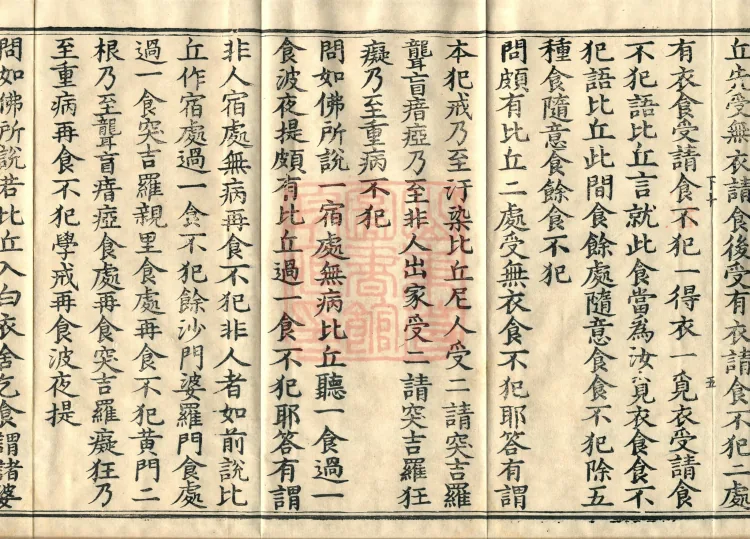 丘先受無衣請食後受有衣請食不犯二處
有衣食受請食不犯一得衣一覓衣受請食
不犯語比丘言就此食當為汝覓衣食食不
犯語比丘此間食餘處隨意食食不犯除五
種食隨意食餘食不犯
問頗有比丘二處受無衣食不犯耶答有謂
本犯戒乃至汙染比丘尼人受二請突吉羅
聾盲瘖瘂乃至非人出家受二請突吉羅狂
癡乃至重病不犯
問如佛所說一宿處無病比丘聽一食過一
食波夜提頗有比丘過一食不犯耶答有謂
非人宿處無病再食不犯非人者如前說比
丘作宿處過一食不犯餘沙門婆羅門食處
過一食突吉羅親里食處再食不犯黃門二
根乃至聾盲瘖瘂食處再食突吉羅癡狂乃
至重病再食不犯學戒再食波夜提
問如佛所說若比丘入白衣舍乞食謂諸婆
下十
五